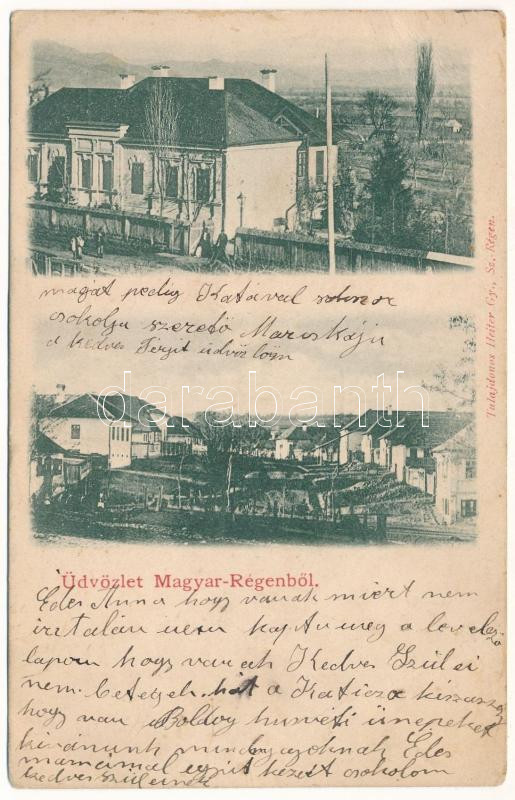 magát pedig Katával
csokolja szerető Mariskája
a kedves Férjit üdvözlöm
Tulajdonos Heiter Gy., Sz. Régen.
darabanth
Üdvözlet Magyar-Régenből.
Édes Anna hogy vanak miért nem
irt talán nem kapta meg a levelező
lapom hogy vanak Kedves Szülei
nem betegek hát a Katicza kisasszony
hogy van Boldog husvéti ünnepeket
kivánunk mindnyajoknak Édes
mamámal együt kezeit csokolom
kedves szüleinek